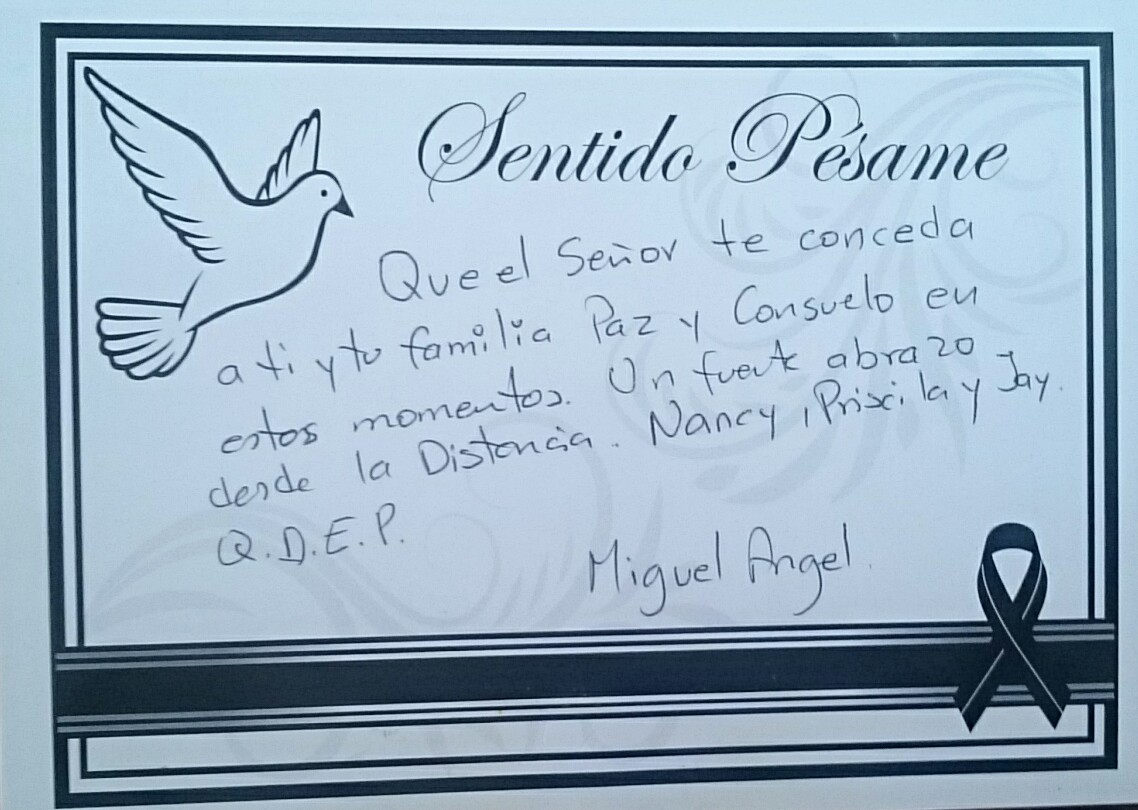 Sentido Pésame
Que el Señor te conceda
a ti y tu familia Paz y Consuelo en
estos momentos. Un fuerte abrazo
desde la Distancia. Nancy, Priscila y Jay.
Q.D.E.P.
Miguel Angel.